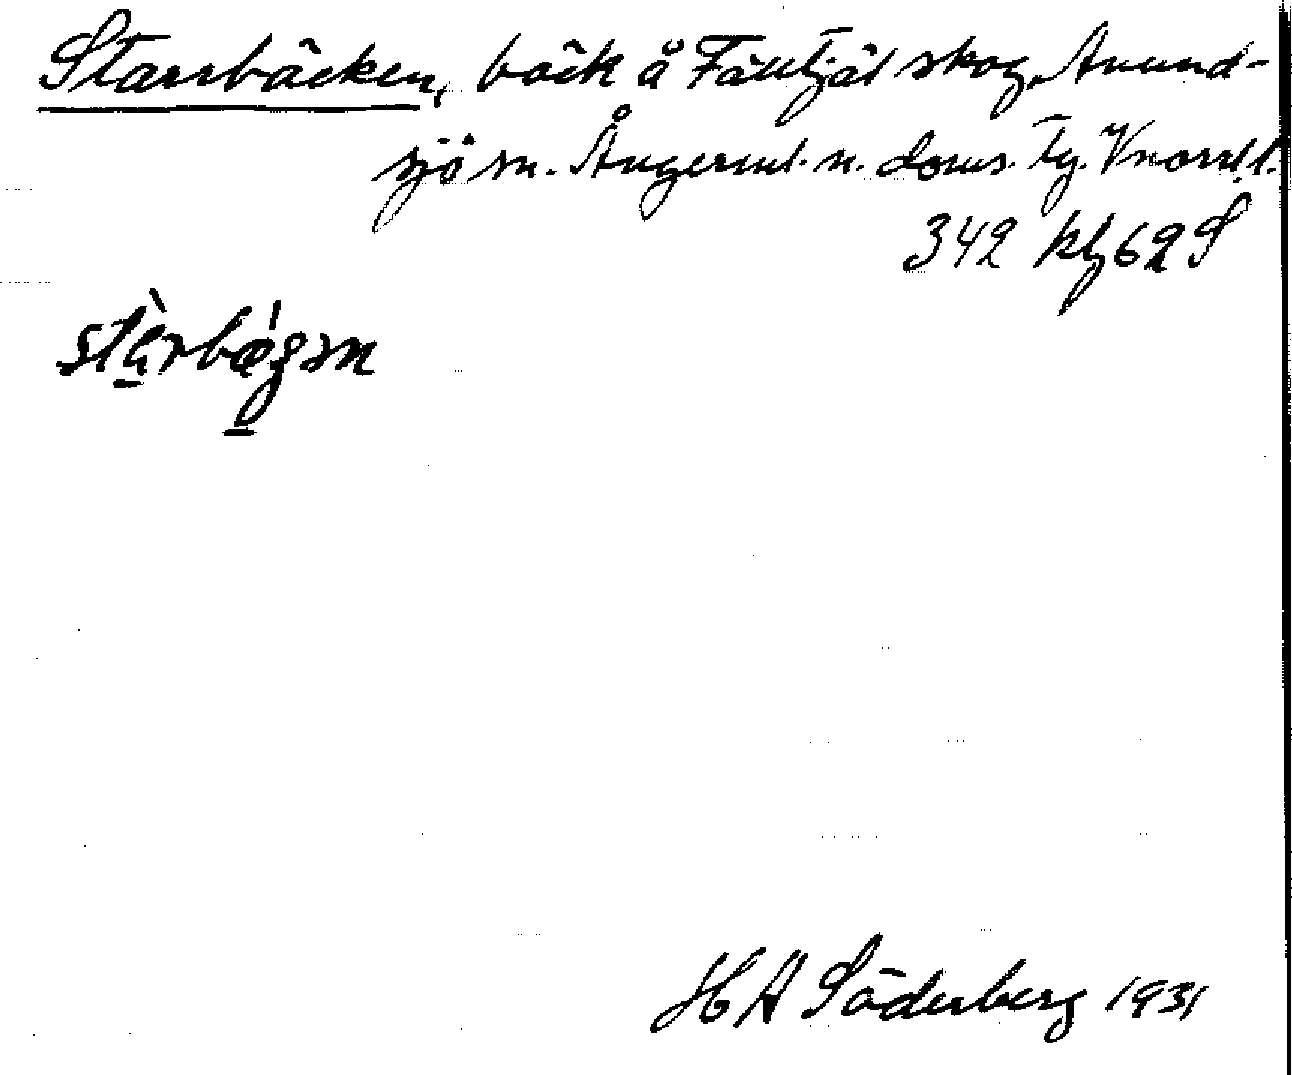 Starrbäcken, bäck å Fälltjäl skog, Anund-
sjö sn. Ångerml. n. doms. Tg. Vnorrl. l.
342 kg 62 S
stàrbǽgən
H A Söderberg 1931